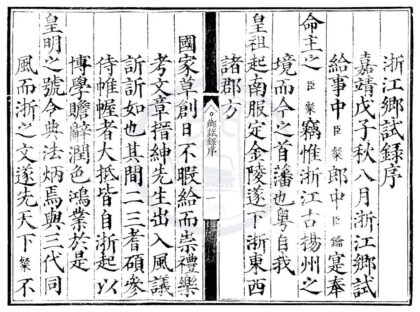 浙江鄉試錄序
嘉靖戊子秋八月浙江鄉試
給事中臣粲郎中臣鑰寔奉
命主之臣粲竊惟浙江古揚州之
境而今之首藩也粵自我
皇祖起南服定金陵遂下浙東西
諸郡方
鄉試錄序
國家草創日不暇給而崇禮樂
考文章搢紳先生出入風議
訢訢如也其間二三耆碩參
侍帷幄者大抵皆自浙起以
博學贍辭潤色鴻業於是
皇明之號令典法炳焉與三代同
風而浙之文遂先天下粲不